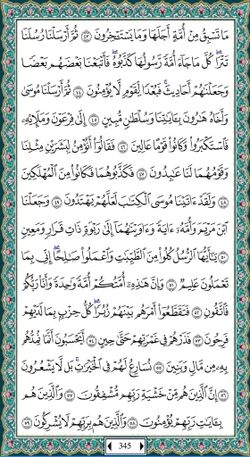 مَا تَسْبِقُ مِنْ أُمَّةٍ أَجَلَهَا وَمَا يَسْتَـْٔخِرُونَ ٤٣ ثُمَّ أَرْسَلْنَا رُسُلَنَا
تَتْرَا ۖ كُلَّ مَا جَآءَ أُمَّةً رَّسُولُهَا كَذَّبُوهُ ۚ فَأَتْبَعْنَا بَعْضَهُم بَعْضًا
وَجَعَلْنَٰهُمْ أَحَادِيثَ ۚ فَبُعْدًا لِّقَوْمٍ لَّا يُؤْمِنُونَ ٤٤ ثُمَّ أَرْسَلْنَا مُوسَىٰ
وَأَخَاهُ هَٰرُونَ بِـَٔايَٰتِنَا وَسُلْطَٰنٍ مُّبِينٍ ٤٥ إِلَىٰ فِرْعَوْنَ وَمَلَإِي۟هِۦ
فَٱسْتَكْبَرُوا۟ وَكَانُوا۟ قَوْمًا عَالِينَ ٤٦ فَقَالُوٓا۟ أَنُؤْمِنُ لِبَشَرَيْنِ مِثْلِنَا
وَقَوْمُهُمَا لَنَا عَٰبِدُونَ ٤٧ فَكَذَّبُوهُمَا فَكَانُوا۟ مِنَ ٱلْمُهْلَكِينَ
٤٨ وَلَقَدْ ءَاتَيْنَا مُوسَى ٱلْكِتَٰبَ لَعَلَّهُمْ يَهْتَدُونَ ٤٩ وَجَعَلْنَا
ٱبْنَ مَرْيَمَ وَأُمَّهُۥٓ ءَايَةً وَءَاوَيْنَٰهُمَآ إِلَىٰ رَبْوَةٍ ذَاتِ قَرَارٍ وَمَعِينٍ
٥٠ يَٰٓأَيُّهَا ٱلرُّسُلُ كُلُوا۟ مِنَ ٱلطَّيِّبَٰتِ وَٱعْمَلُوا۟ صَٰلِحًا ۖ إِنِّى بِمَا
تَعْمَلُونَ عَلِيمٌ ٥١ وَإِنَّ هَٰذِهِۦٓ أُمَّتُكُمْ أُمَّةً وَٰحِدَةً وَأَنَا۠ رَبُّكُمْ
فَٱتَّقُونِ ٥٢ فَتَقَطَّعُوٓا۟ أَمْرَهُم بَيْنَهُمْ زُبُرًا ۖ كُلُّ حِزْبٍۭ بِمَا لَدَيْهِمْ
فَرِحُونَ ٥٣ فَذَرْهُمْ فِى غَمْرَتِهِمْ حَتَّىٰ حِينٍ ٥٤ أَيَحْسَبُونَ أَنَّمَا نُمِدُّهُم
بِهِۦ مِن مَّالٍ وَبَنِينَ ٥٥ نُسَارِعُ لَهُمْ فِى ٱلْخَيْرَٰتِ ۚ بَل لَّا يَشْعُرُونَ
٥٦ إِنَّ ٱلَّذِينَ هُم مِّنْ خَشْيَةِ رَبِّهِم مُّشْفِقُونَ ٥٧ وَٱلَّذِينَ هُم
بِـَٔايَٰتِ رَبِّهِمْ يُؤْمِنُونَ ٥٨ وَٱلَّذِينَ هُم بِرَبِّهِمْ لَا يُشْرِكُونَ ٥٩
345